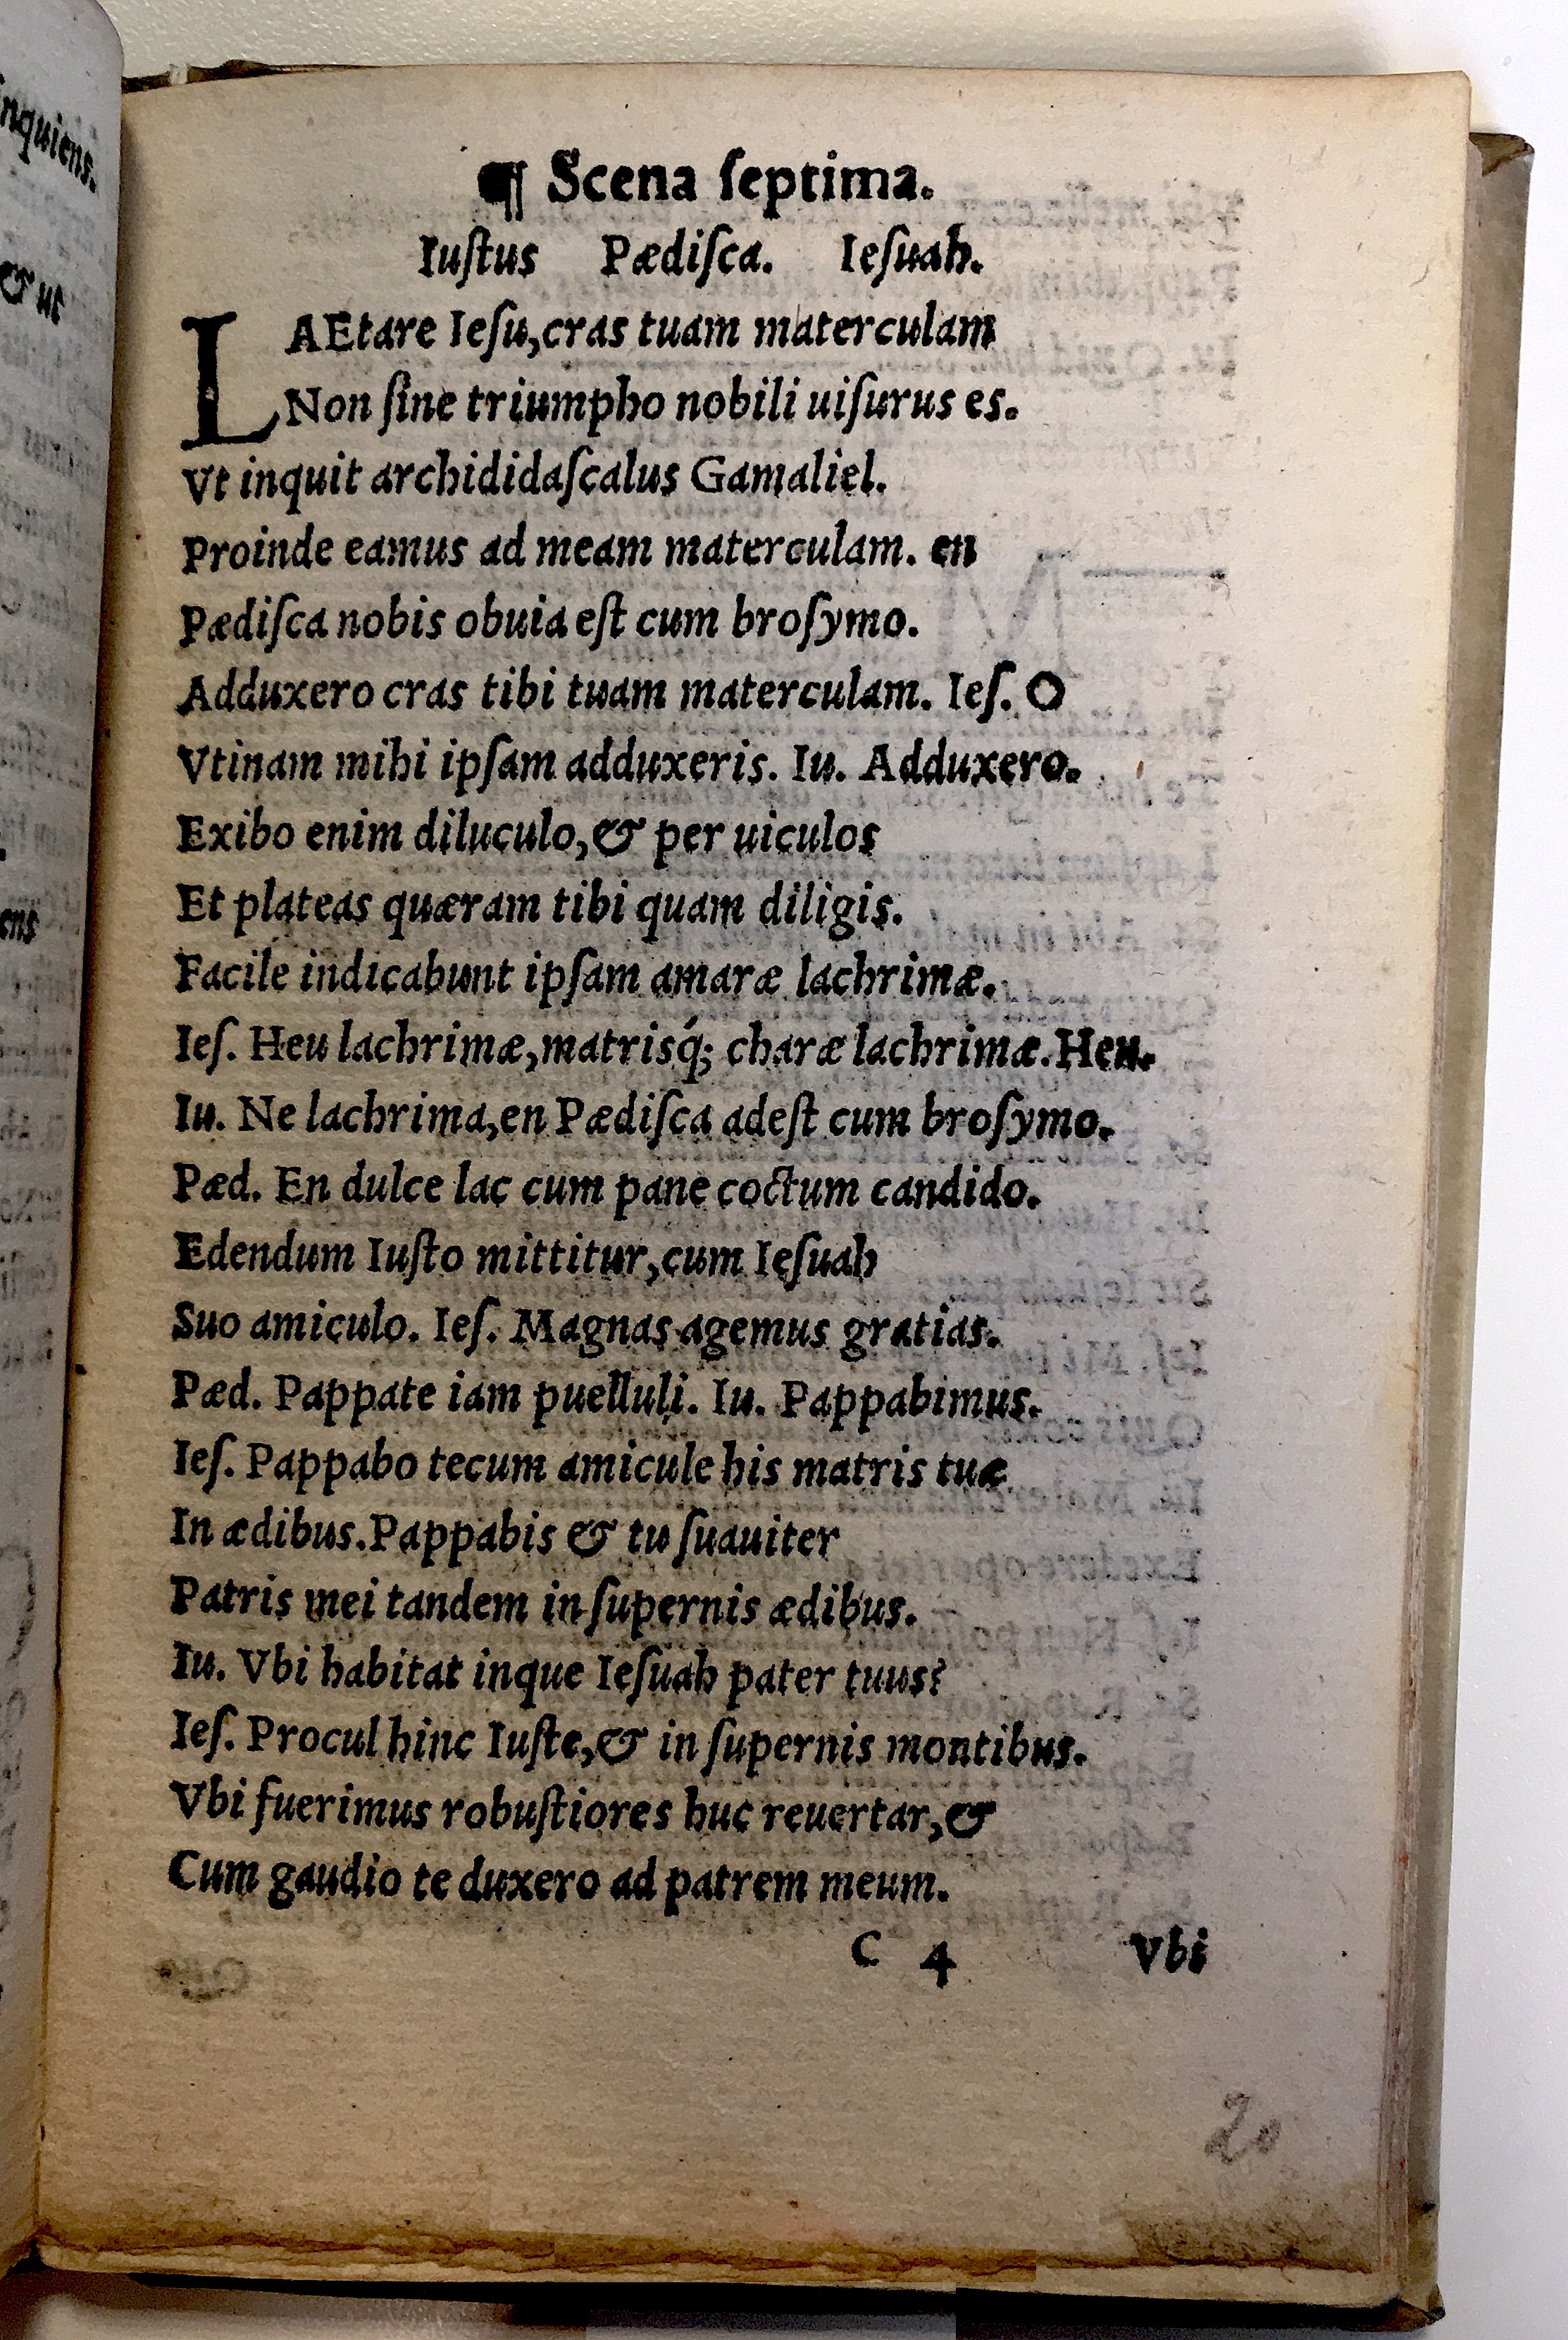 ¶ Scena ſeptima.
Iuſtus Pædiſca. Ieſuah.
LAEtare Ieſu,cras tuam materculam
Non ſine triumpho nobili uiſurus es.
Vt inquit archididaſcalus Gamaliel.
Proinde eamus ad meam materculam. en
Pædiſca nobis obuia eſt cum broſymo.
Adduxero cras tibi tuam materculam. Ieſ. O
Vtinam mihi ipſam adduxeris. Iu. Adduxero.
Exibo enim diluculo,& per uiculos
Et plateas quæram tibi quam diligis.
Facile indicabunt ipſam amaræ lachrimæ.
Ieſ. Heu lachrimæ,matrisq́; charæ lachrimæ.Heu.
Iu. Ne lachrima,en Pædiſca adeſt cum broſymo.
Pæd. En dulce lac cum pane coctum candido.
Edendum Iuſto mittitur,cum Ieſuah
Suo amiculo. Ieſ. Magnas agemus gratias.
Pæd. Pappate iam puelluli. Iu. Pappabimus.
Ieſ. Pappabo tecum amicule his matris tuæ
In ædibus.Pappabis & tu ſuauiter
Patris mei tandem in ſupernis ædibus.
Iu. Vbi habitat inque Ieſuah pater tuus?
Ieſ. Procul hinc Iuſte,& in ſupernis montibus.
Vbi fuerimus robuſtiores huc reuertar,&
Cum gaudio te duxero ad patrem meum.
C 4 Vbi
20
nquiens.
ens